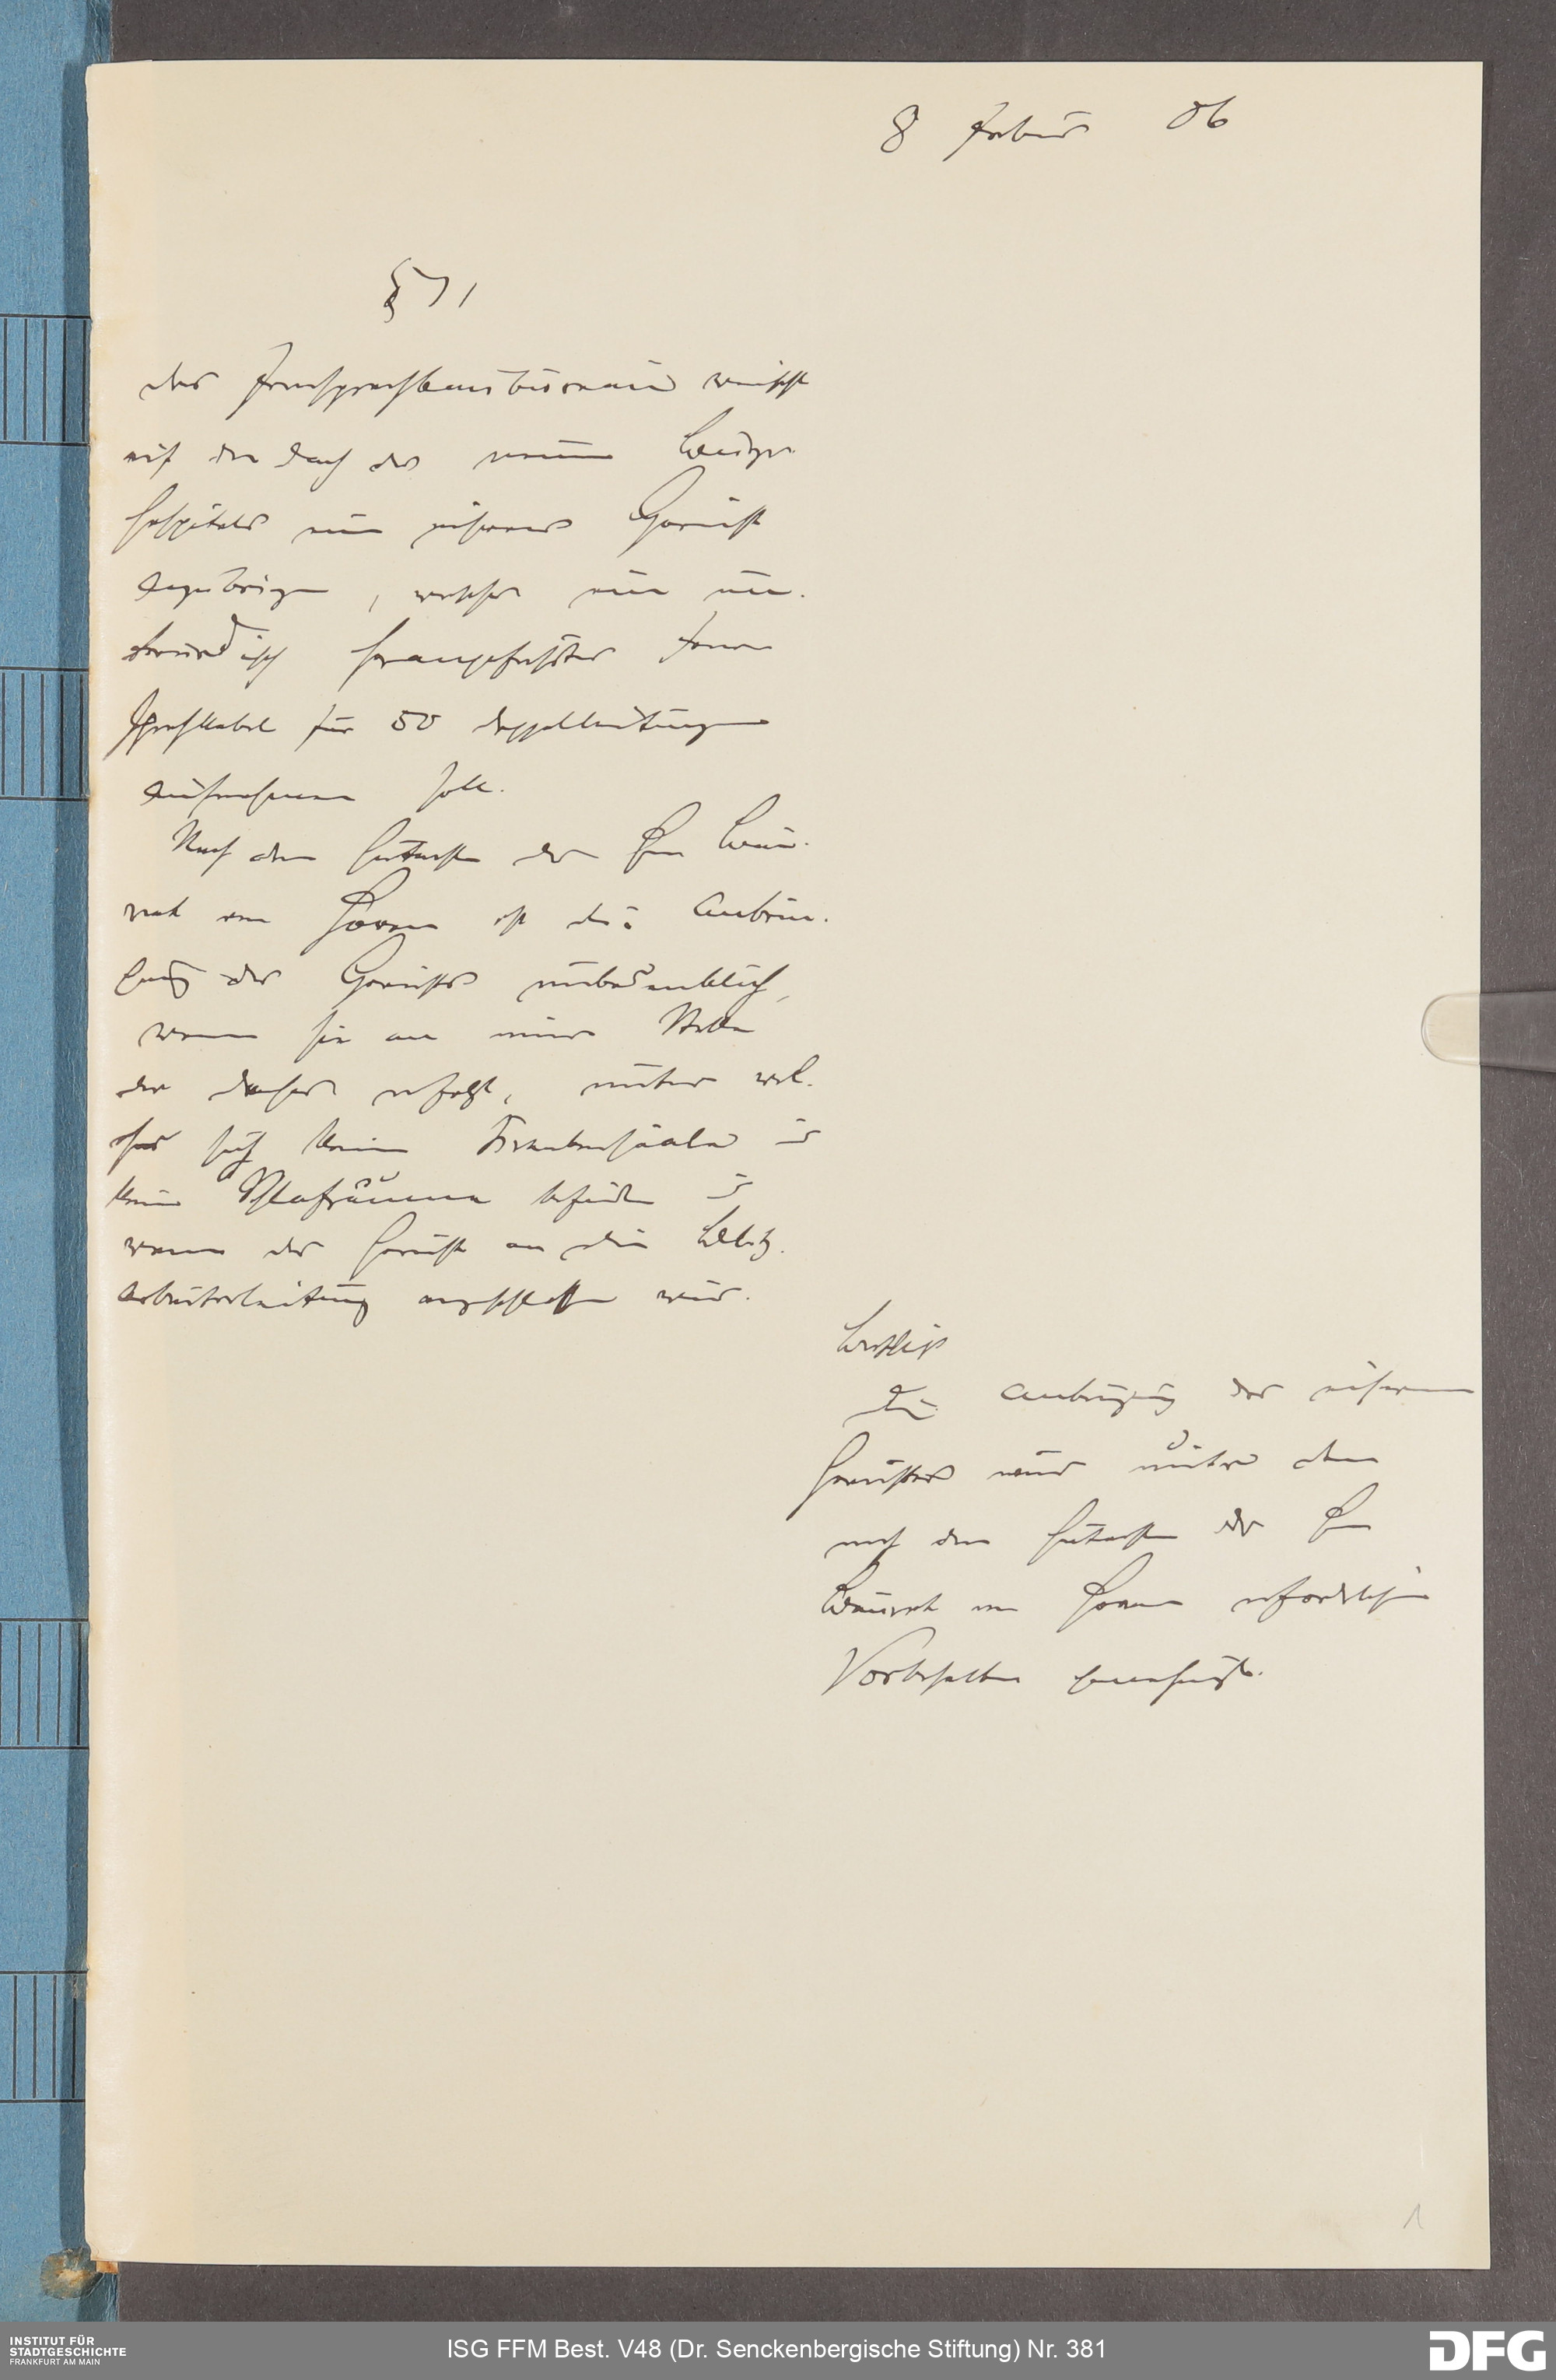 8 Februar 06
§ 71
das Fernsprechbaubüreau wünscht
auf dem Dach des neuen Bürger
hospitals ein eisernes Gerüst
anzubringen, welches ein un-
terirdisch herangeführtes Fern
sprechkabel für 50 Doppelleitungen
aufnehmen soll.
Nach dem Gutachten des Hrn Bau-
rat von Hoven ist die Anbrin-
gung des Gerüstes unbedenklich,
wenn sie an einer Stelle
des Daches erfolgt, unter wel-
cher sich keine Krankensääle u
keine Schlafräume befinden u
wenn das Gerüst an die Blitz-
ableiterleitung angeschlossen wird.
Beschluß
Die Anbringung des eisernen
Gerüstes wird unter dem
nach dem Gutachten des Hrn
Baurat von Hoven erforderlichen
Vorbehalten genehmigt.
1
INSTITUT FÜR
STADTGESCHICHTE
FRANKFURT AM MAIN
ISG FFM Best. V48 (Dr. Senckenbergische Stiftung) Nr. 381
DFG